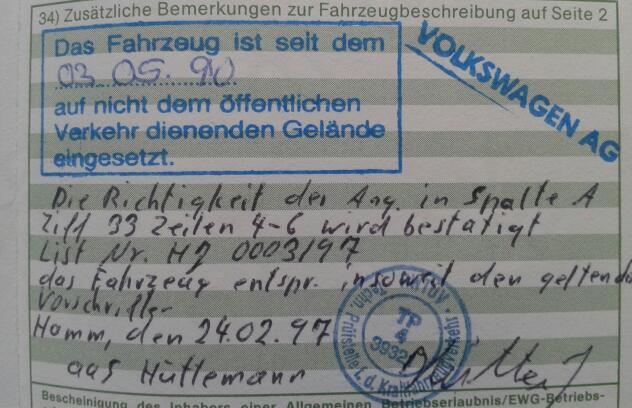 34) Zusätzliche Bemerkungen zur Fahrzeugbeschreibung auf Seite 2
Das Fahrzeug ist seit dem
03 05. 90
auf nicht dem öffentlichen
Verkehr dienenden Gelände
eingesetzt.
VOLKSWAGEN AG
Die Richtigkeit der Ang. in Spalte A
Ziff 33 Zeilen 4-6 wird bestätigt
List Nr. HJ 0003/97
das Fahrzeug entspr. insoweit den geltend
Vorschriften
Hamm, den 24.02.97
aas Hüttemann
Techn. Prüfstelle f. d. Kraftfahrzeugverkehr
TP
4
3932
Bescheinigung des Inhabers einer Allgemeinen Betriebserlaubnis/EWG-Betriebs-